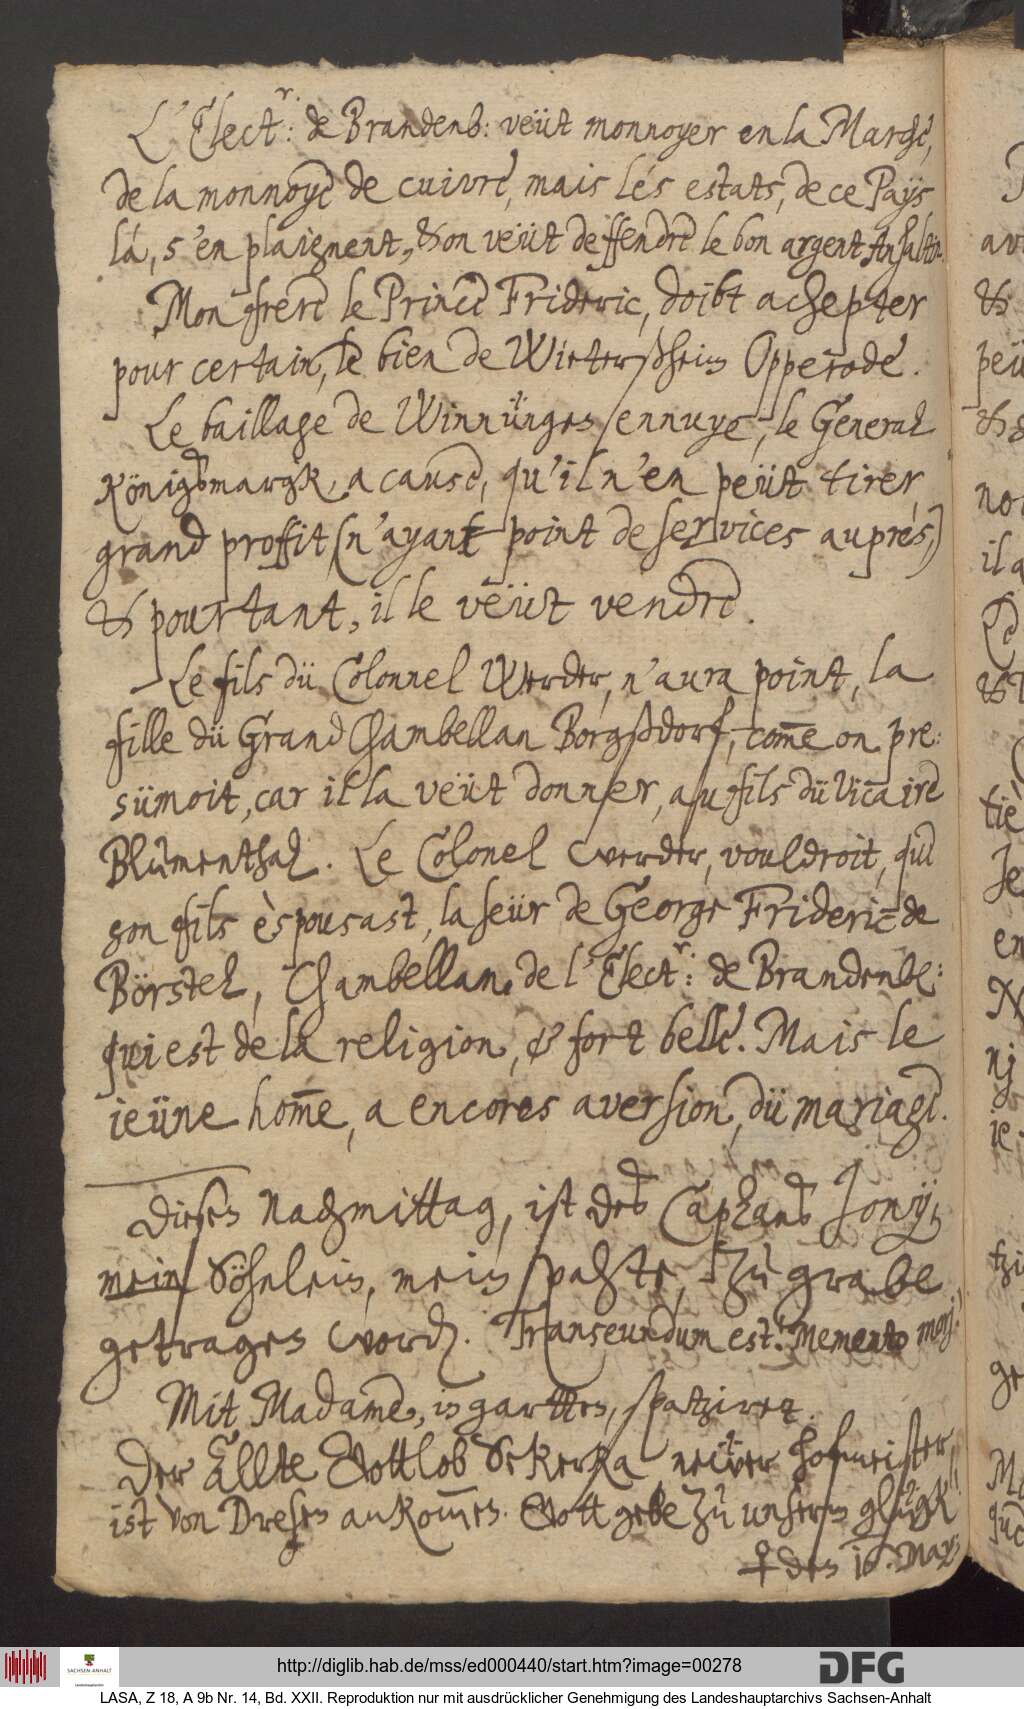 L'Elect.r: de Brandenb: veüt monnoyer en la Marche,
de la monnoye de cuivre, mais lés estats, de ce Paÿs
là, s'en plaignent, & on veüt deffendre le bon argent Anhaltin.
Mon frere le Prince Frideric, doibt achepter
pour certain, le bien de Wietersheim Opperode.
Le baillage de Winnüngen ennuye, le General
Königsmargk, a cause, qu'il n'en peüt tirer,
grand proffit, (n'ayant point de services auprés,)
& pourtant, il le veüt vendre.
Le fils dü Colonnel Werder, n'aura point, la
fille dü Grand Chambellan Borgßdorf, com̅e on pre:
sümoit, car il la veüt donner, au fils dü Vicaire
Blumenthal. Le Colonel Werder, vouldroit, que
son fils èspousast, la seür de George Frideric de
Börstel, Chambellan, de l'Elect.r: de Brandenb:
qui est de la religion, & fort belle. Mais le
ieüne hom̅e, a encores aversion, dü mariage.
Diesen Nachmittag, ist des Caplans Jonij,
mein Söhnlein, mein pahte, zu grabe
getragen worden. Transeundum est! Memento morj!
Mit Madame, in gartten, spatziret.
Der Ällte Gottlob Sekerka neẅer hofmeister,
ist von Dreßen ankom̅en. Gott gebe zu unserm glügk!
♀ den 16. May:
http://diglib.hab.de/mss/ed000440/start.htm?image=00278
DFG
SACHSEN-ANHALT
Landeshauptarchiv
LASA, Z 18, A 9b Nr. 14, Bd. XXII. Reproduktion nur mit ausdrücklicher Genehmigung des Landeshauptarchivs Sachsen-Anhalt